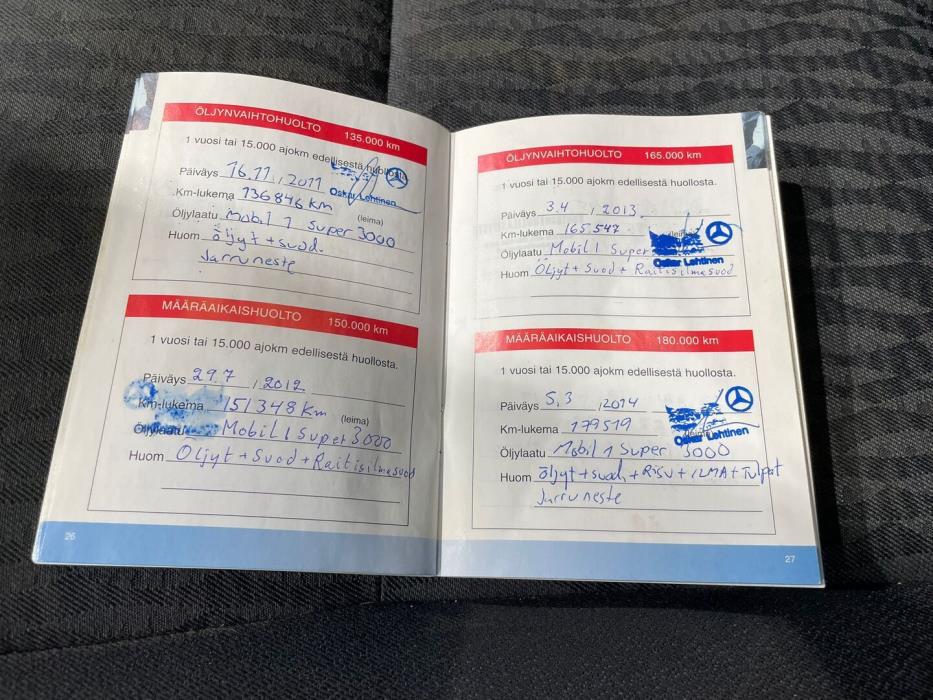 ÖLJYNVAIHTOHUOLTO 135.000 km
1 vuosi tai 15.000 ajokm edellisestä huollosta
Päiväys 16.11 / 2011
Oskar Lehtinen
Km-lukema 136846 km
(leima)
Öljylaatu Mobil 1 Super 3000
Huom öljyt + suod.
Jarruneste
MÄÄRÄAIKAISHUOLTO 150.000 km
1 vuosi tai 15.000 ajokm edellisestä huollosta.
Päiväys 29.7 / 2012
Km-lukema 151348 km
(leima)
Öljylaatu Mobil 1 Super 3000
Huom Öljyt + Suod + Raitisilmasuod
26
ÖLJYNVAIHTOHUOLTO 165.000 km
1 vuosi tai 15.000 ajokm edellisestä huollosta.
Päiväys 3.4 / 2013
Km-lukema 165547
Öljylaatu Mobil 1 Super
Oskar Lehtinen
Huom Öljyt + Suod + Raitisilmasuod
MÄÄRÄAIKAISHUOLTO 180.000 km
1 vuosi tai 15.000 ajokm edellisestä huollosta.
Päiväys 5.3 / 2014
Km-lukema 179519
Oskar Lehtinen
Öljylaatu Mobil 1 Super 3000
Huom öljyt + suod. + RISU + ILMA + Tulpat
Jarruneste
27